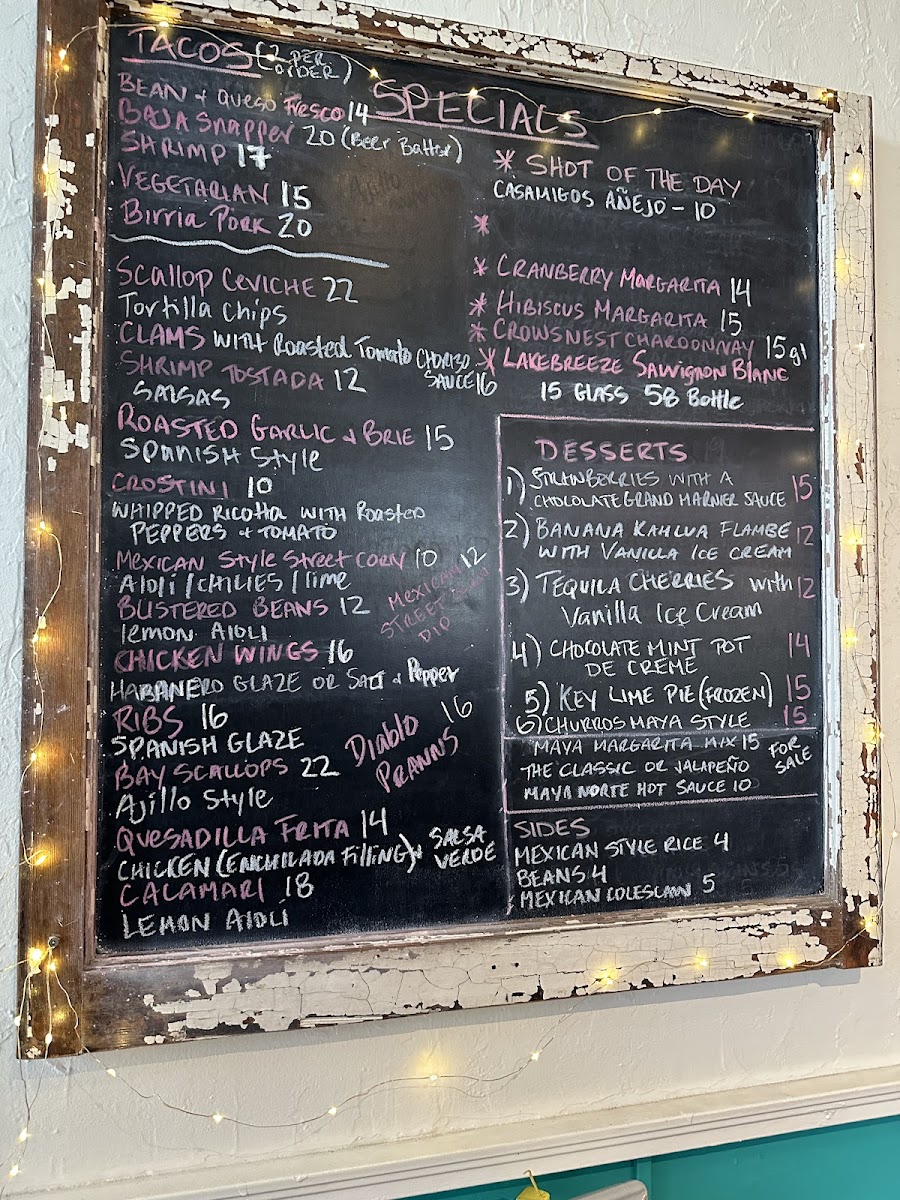 TACOS (2 PER ORDER)
BEAN + QUESO FRESCO 14
BAJA SNAPPER 20 (Beer Batter)
SHRIMP 17
VEGETARIAN 15
Birria Pork 20
Scallop Ceviche 22
Tortilla Chips
CLAMS WITH Roasted Tomato CHORIZO SAUCE 16
SHRIMP TOSTADA 12
SALSAS
ROASTED GARLIC & BRIE 15
SPANISH STYLE
CROSTINI 10
WHIPPED RICOTTA WITH ROASTED
PEPPERS + TOMATO
MEXICAN STYLE STREET CORN 10
AIOLI / CHILIES / lime
BLISTERED BEANS 12
lemon AIOLI
MEXICAN 12
STREET CORN
DIP
CHICKEN WINGS 16
HABANERO GLAZE OR SALT & Pepper
RIBS 16
SPANISH GLAZE
BAY SCALLOPS 22
Ajillo Style
Diablo 16
PRAWNS
QUESADILLA FRITA 14
CHICKEN (ENCHILADA Filling) SALSA VERDE
CALAMARI 18
LEMON AIOLI
SPECIALS
* SHOT OF THE DAY
CASAMIGOS AÑEJO - 10
*
* CRANBERRY MARGARITA 14
* HIBISCUS MARGARITA 15
* CROWSNEST CHARDONNAY 15 gl
* LAKEBREEZE SAUVIGNON BLANC
15 GLASS 58 Bottle
DESSERTS
1) STRAWBERRIES WITH A
CHOCOLATE GRAND MARNIER SAUCE 15
2) BANANA KAHLUA FLAMBE 12
WITH VANILLA ICE CREAM
3) TEQUILA CHERRIES with 12
Vanilla Ice Cream
4) CHOCOLATE MINT POT 14
DE CREME
5) KEY LIME PIE (FROZEN) 15
6) CHURROS MAYA STYLE 15
MAYA MARGARITA MIX 15 FOR SALE
THE CLASSIC OR JALAPEÑO
MAYA NORTE HOT SAUCE 10
SIDES
MEXICAN STYLE RICE 4
BEANS 4
MEXICAN COLESLAW 5